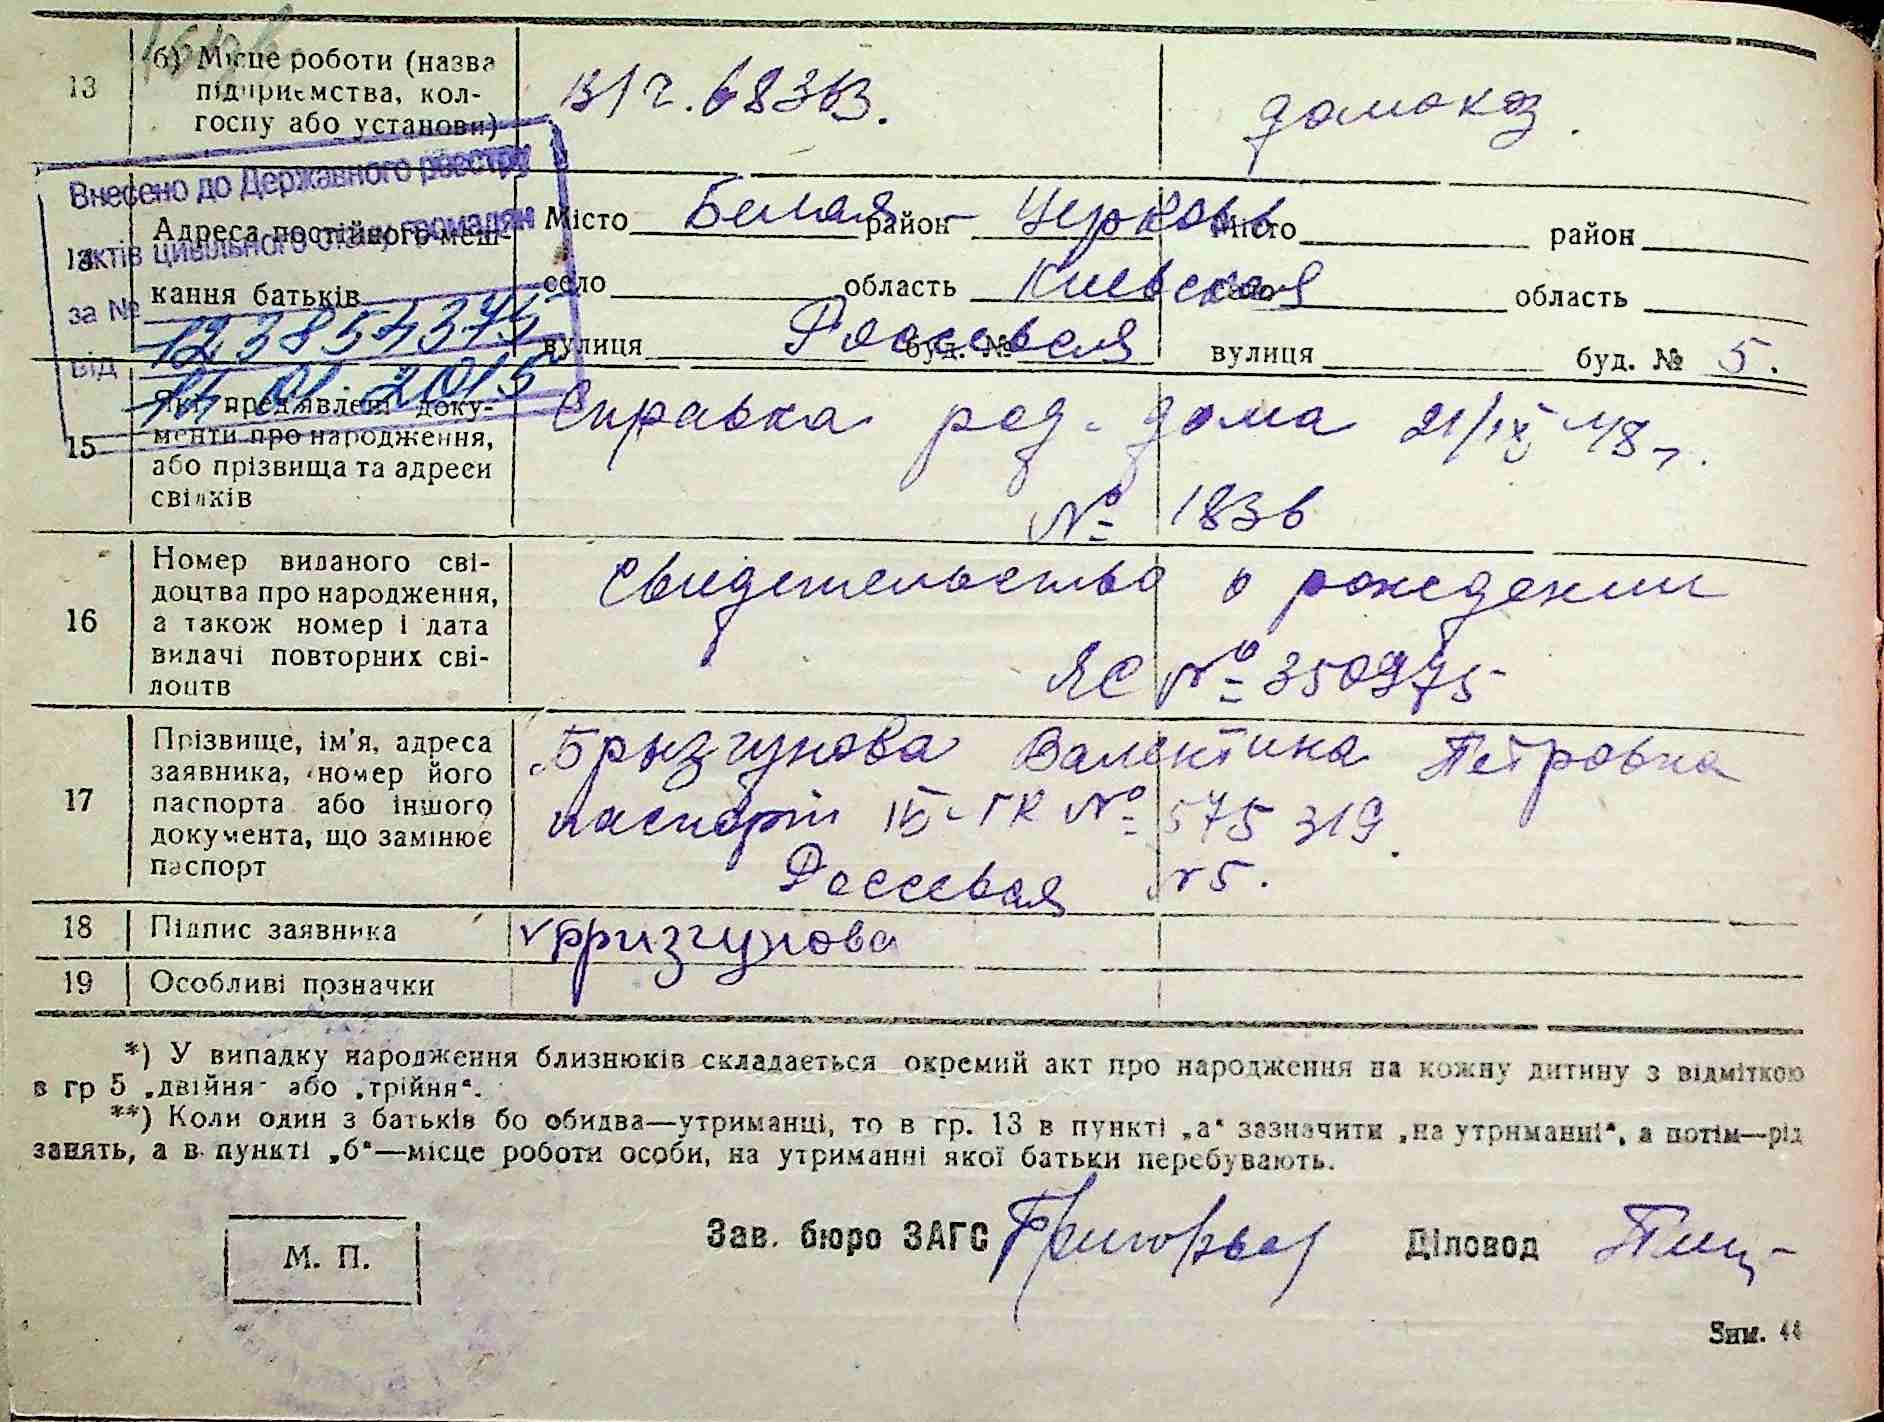 13 б) Місце роботи (назва
підприємства, кол-
госпу або установи)
в/ч. 68363. домохоз.
Внесено до Державного реєстру
актів цивільного стану громадян
за №
від 14.01.2015
14 Адреса постійного меш-
кання батьків
Місто Белая район Церковь Місто район
село область Киевская село область
вулиця буд. № вулиця буд. № 5.
15 Які пред'явлені доку-
менти про народження,
або прізвища та адреси
свідків
Справка род-дома 21/IX-48 г.
№ 1836
16 Номер виданого сві-
доцтва про народження,
а також номер і дата
видачі повторних сві-
доцтв
Свидетельство о рождении
ЯС № 350975
17 Прізвище, ім'я, адреса
заявника, номер його
паспорта або іншого
документа, що замінює
паспорт
Брызгунова Валентина Петровна
паспорт № 575319.
№5.
18 Підпис заявника
Бризгунова
19 Особливі позначки
*) У випадку народження близнюків складається окремий акт про народження на кожну дитину з відміткою
в гр 5 „двійня" або „трійня".
**) Коли один з батьків бо обидва—утриманці, то в гр. 13 в пункті „а" зазначити „на утриманні", а потім—рід
занять, а в пункті „б"—місце роботи особи, на утриманні якої батьки перебувають.
М. П.
Зав. бюро ЗАГС
Діловод
Зим. 44